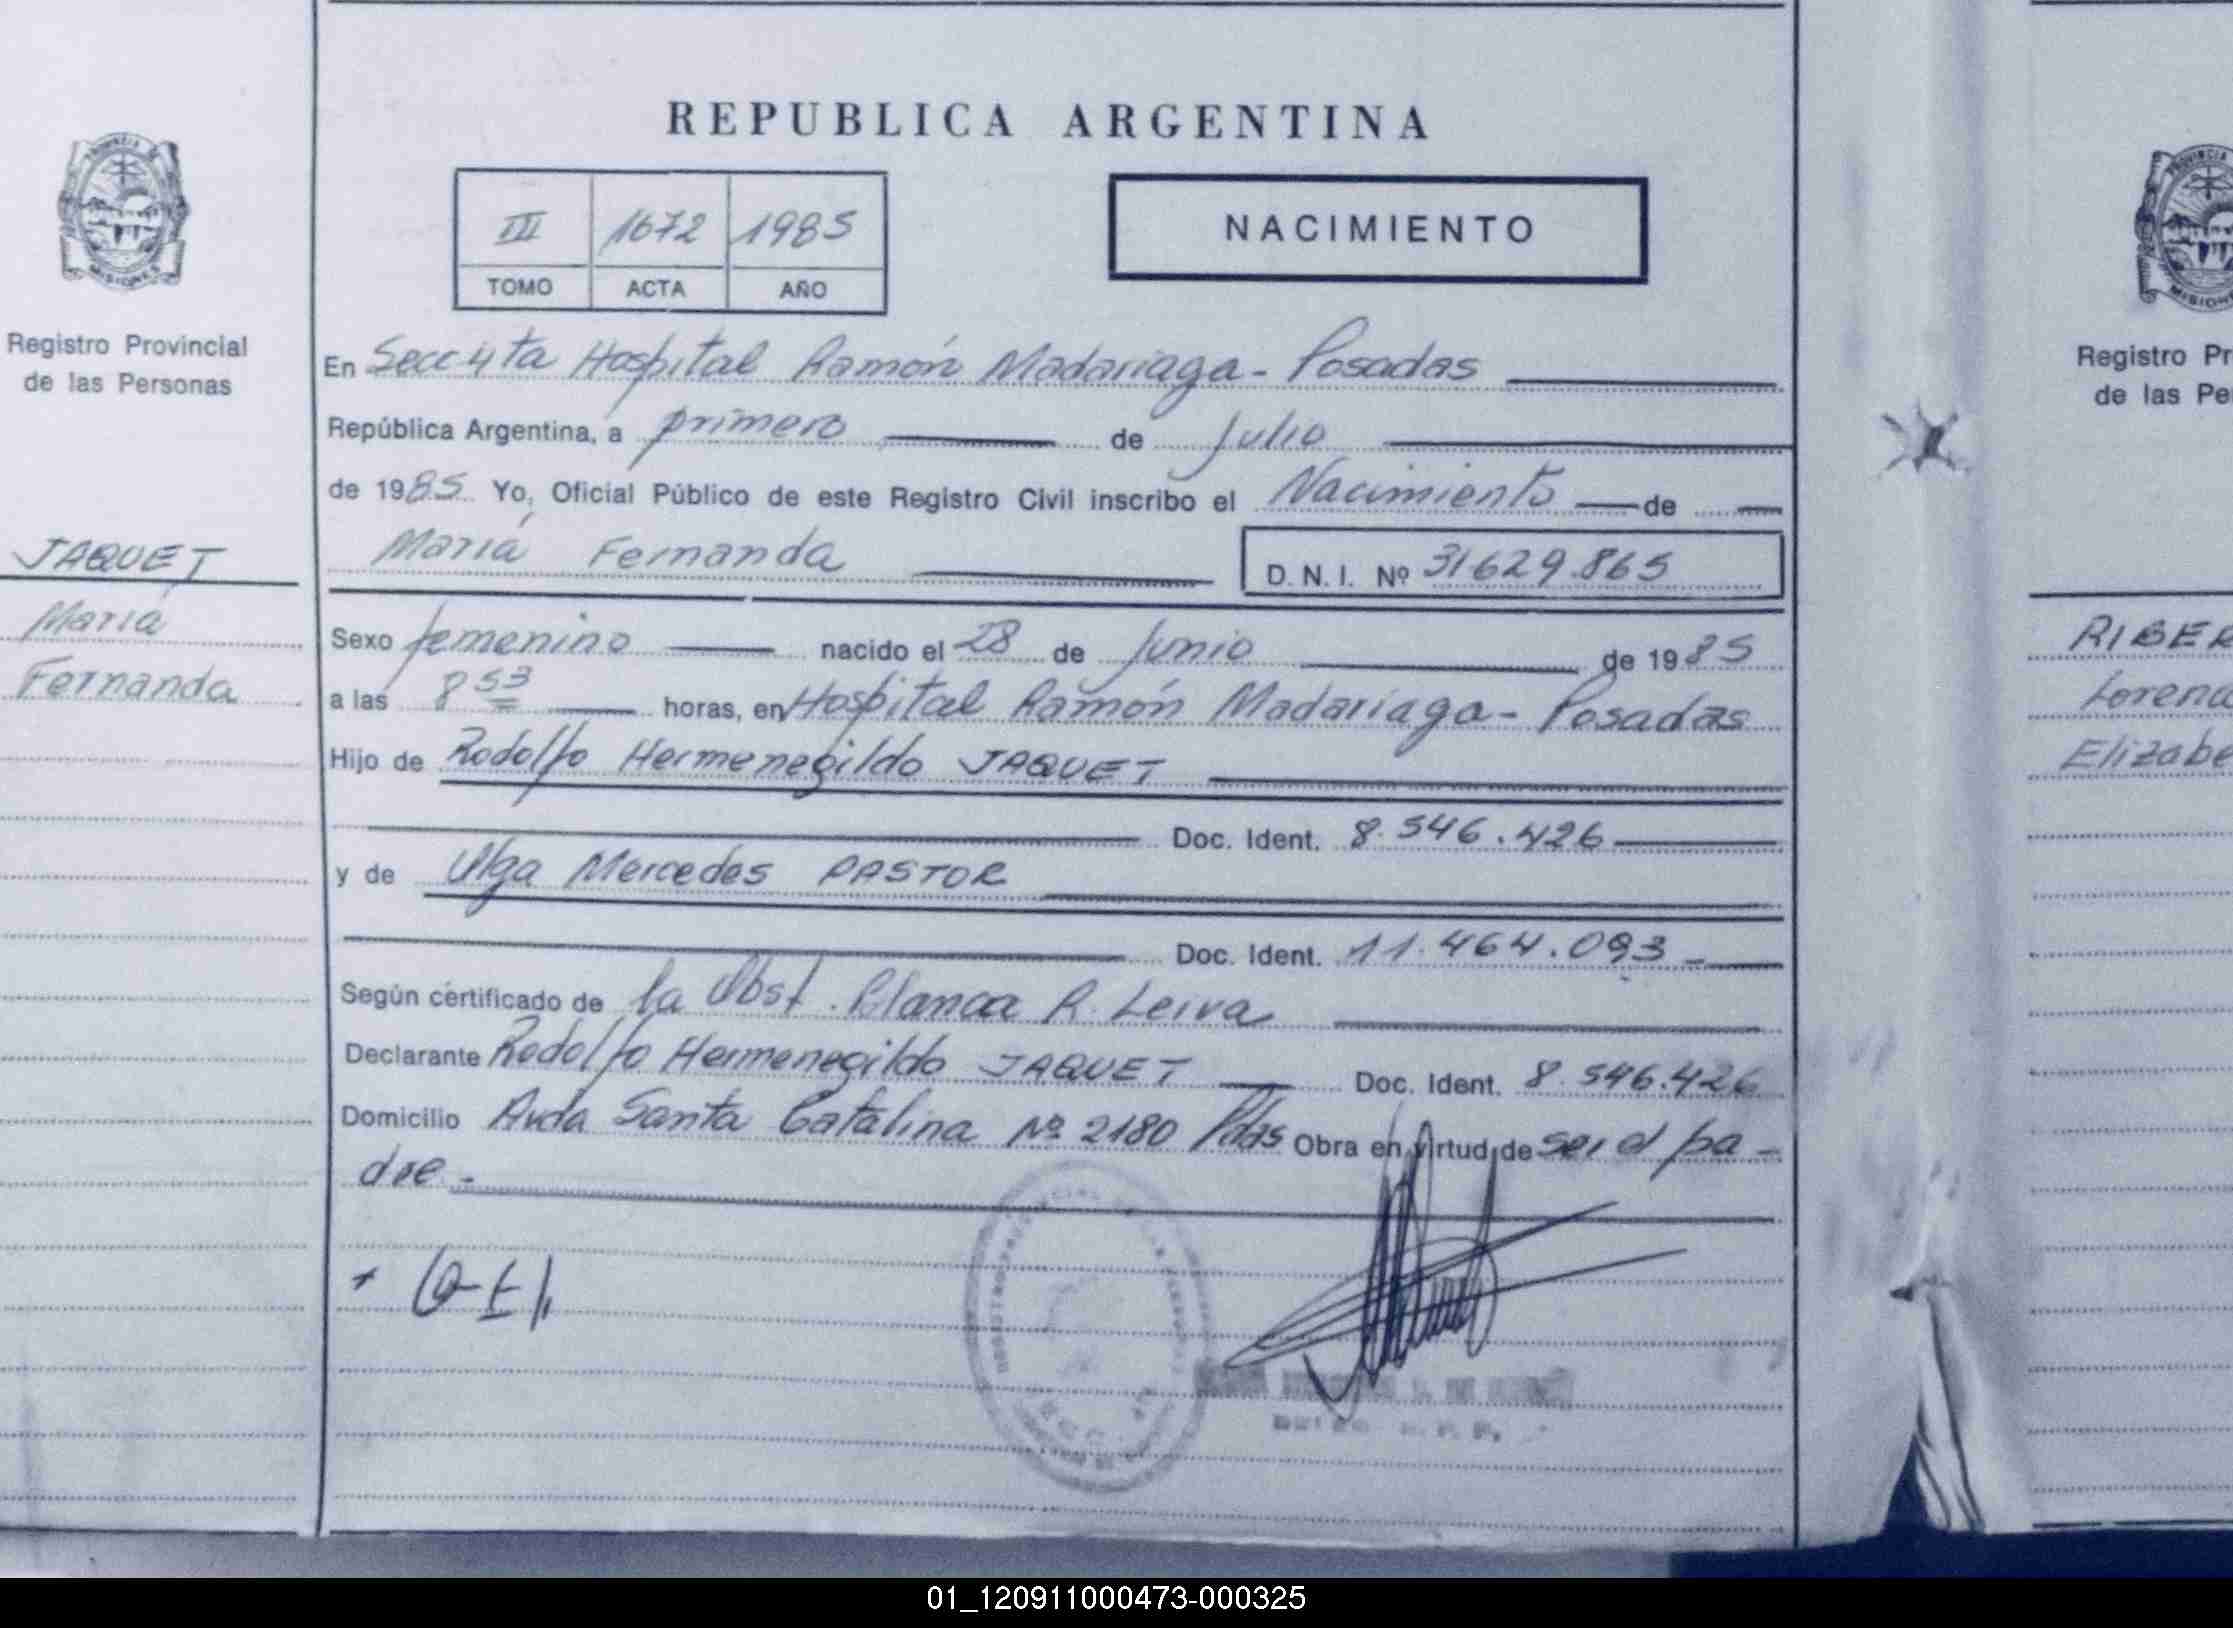 REPUBLICA ARGENTINA
III 1672 1985
TOMO ACTA AÑO
NACIMIENTO
PROVINCIA DE
MISIONES
Registro Provincial
de las Personas
JAQUET
María
Fernanda
En Secc 4ta Hospital Ramón Madariaga - Posadas
República Argentina, a primero de Julio
de 1985 Yo, Oficial Público de este Registro Civil inscribo el Nacimiento de
María Fernanda D.N.I. Nº 31.629.865
Sexo femenino nacido el 28 de Junio de 1985
a las 8 53 horas, en Hospital Ramón Madariaga - Posadas
Hijo de Rodolfo Hermenegildo JAQUET
Doc. Ident. 8.546.426
y de Olga Mercedes PASTOR
Doc. Ident. 11.464.093 -
Según certificado de la Obst. Blanca R. Leiva
Declarante Rodolfo Hermenegildo JAQUET Doc. Ident. 8.546.426
Domicilio Avda Santa Catalina Nº 2180 Pdas Obra en virtud de ser el pa -
dre -
PROVINCIA
MISIONES
Registro Pr
de las Pe
RIBER
Lorena
Elizabe
01_120911000473-000325